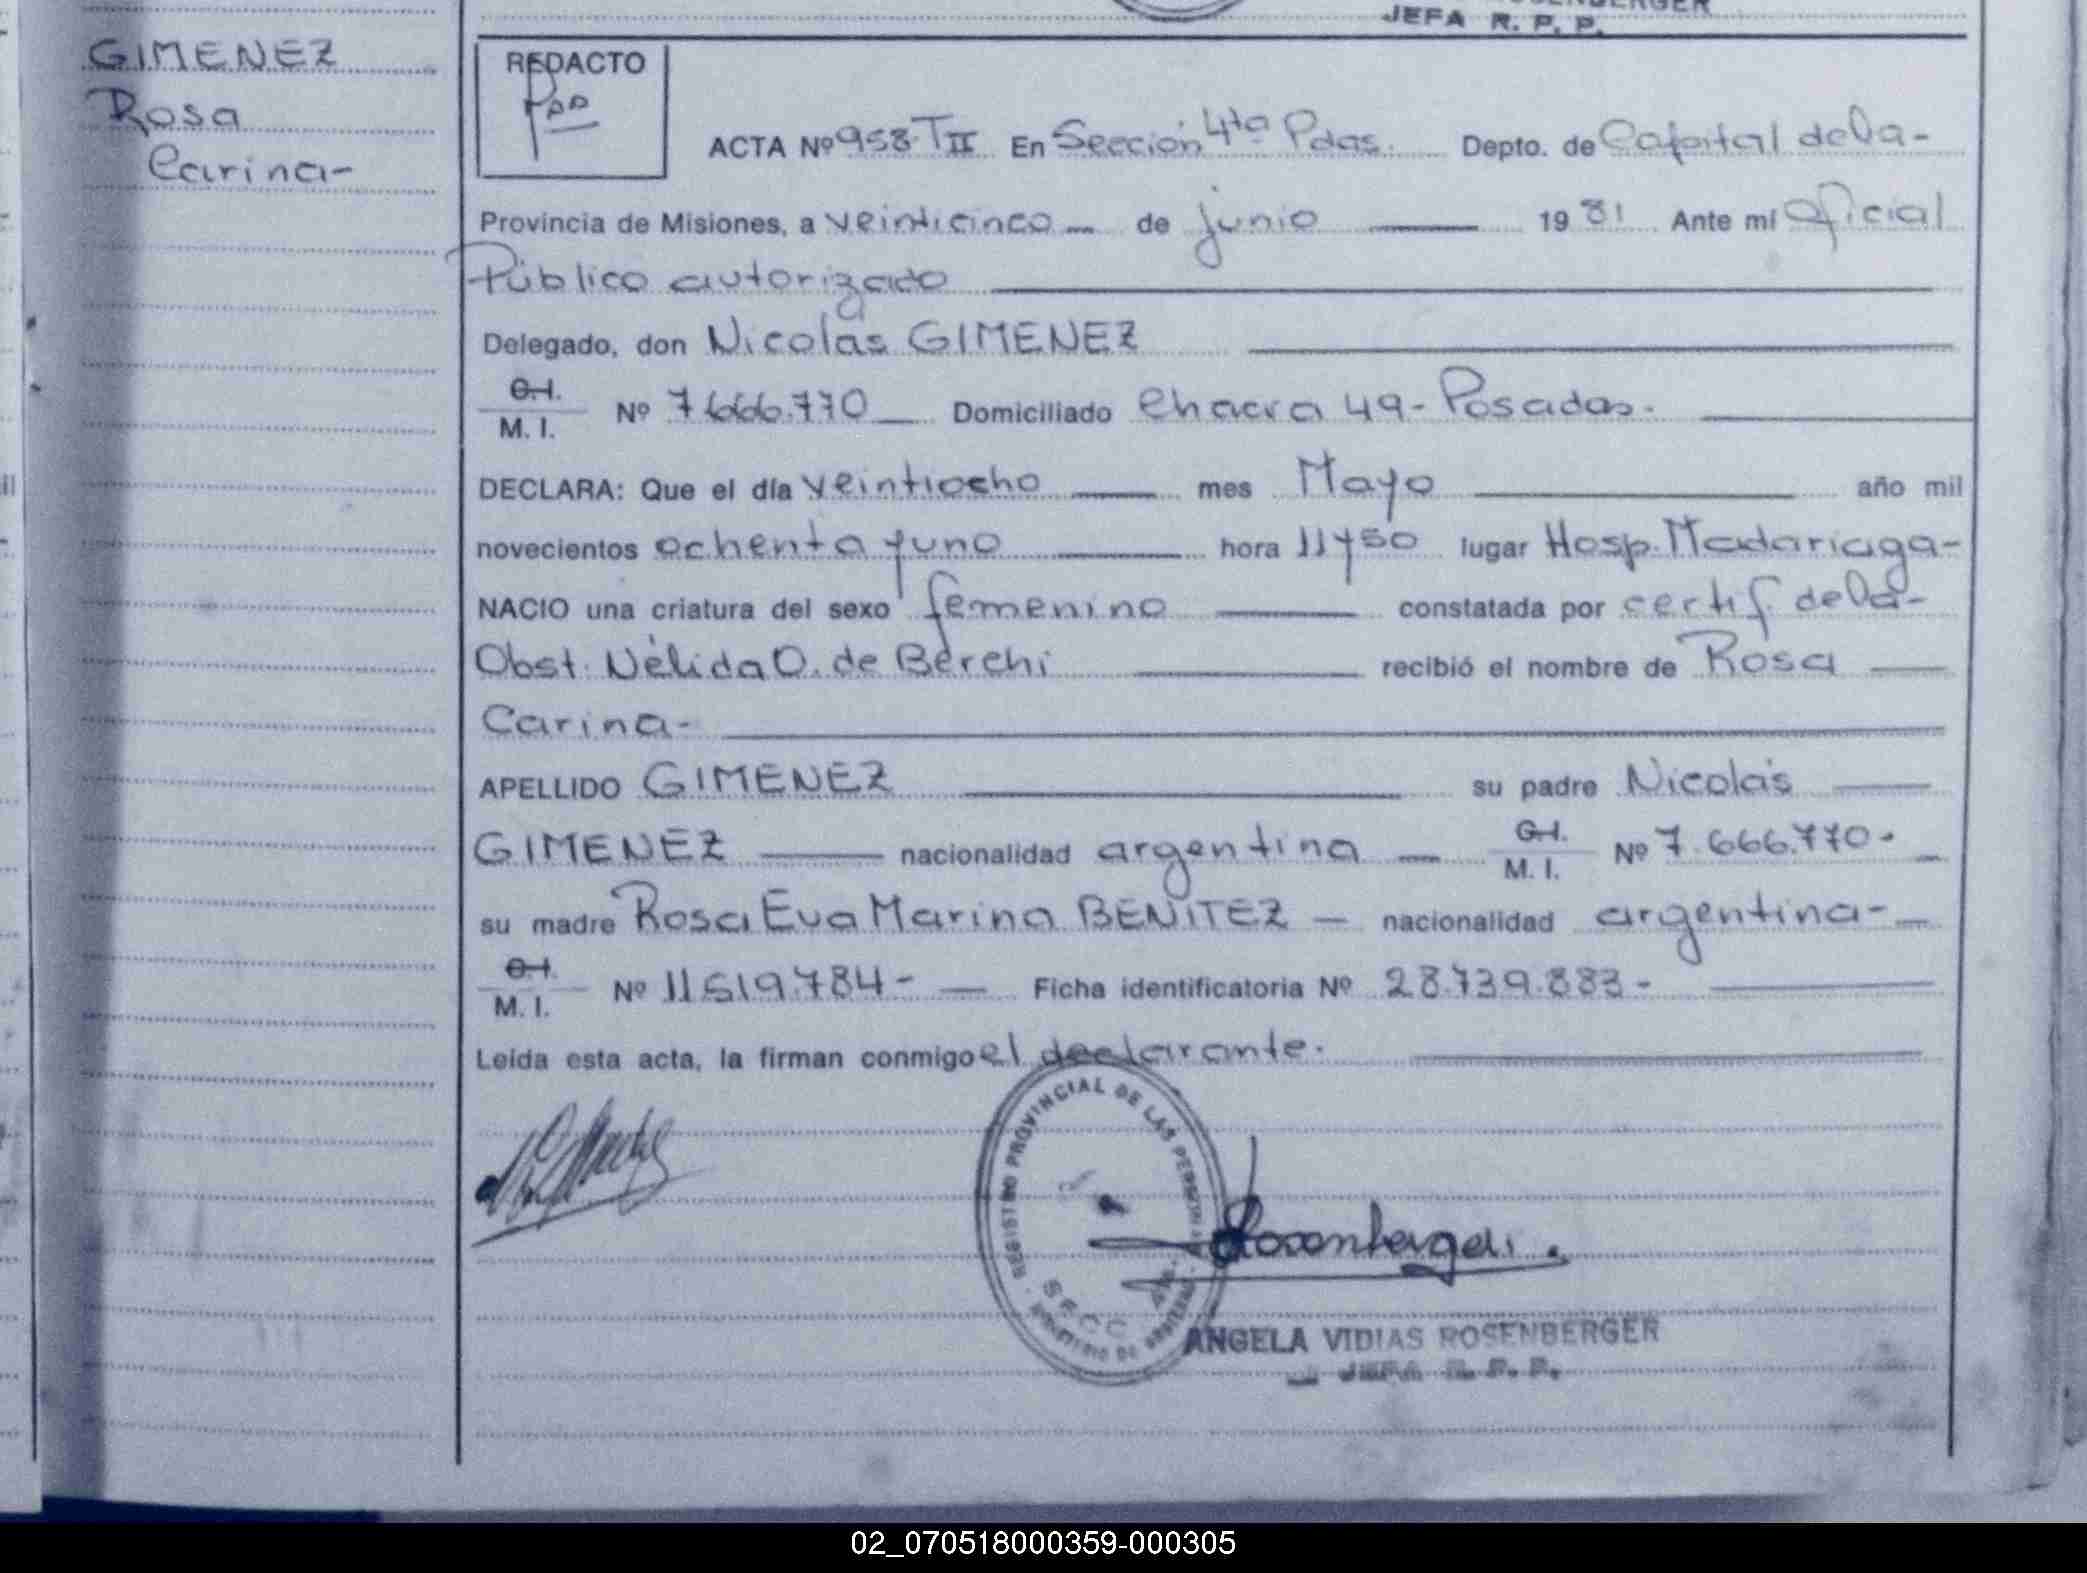 JEFA R. P. P.
GIMENEZ
Rosa
Carina-
REDACTO
ACTA Nº 958-TII En Sección 4ta Pdas. Depto. de Capital de la-
Provincia de Misiones, a veinticinco de junio 1981 Ante mí Oficial
Público autorizado
Delegado, don Nicolás GIMENEZ
C.I.
M. I. Nº 7.666.770 Domiciliado Chacra 49- Posadas.
DECLARA: Que el día veintiocho mes Mayo año mil
novecientos ochenta y uno hora 11 y 50 lugar Hosp. Madariaga-
NACIO una criatura del sexo femenino constatada por certif. de la-
Obst. Nélida O. de Berchi recibió el nombre de Rosa
Carina-
APELLIDO GIMENEZ su padre Nicolás
GIMENEZ nacionalidad argentina C.I. M. I. Nº 7.666.770-
su madre Rosa Eva Marina BENITEZ nacionalidad argentina-
C.I.
M. I. Nº 11.519.784- Ficha identificatoria Nº 28.739.883-
Leída esta acta, la firman conmigo el declarante.
REGISTRO PROVINCIAL DE LAS PERSONAS
SECC. 4ta.
MINISTERIO DE GOBIERNO
Rosenberger
ANGELA VIDIAS ROSENBERGER
JEFA R. P. P.
02_070518000359-000305